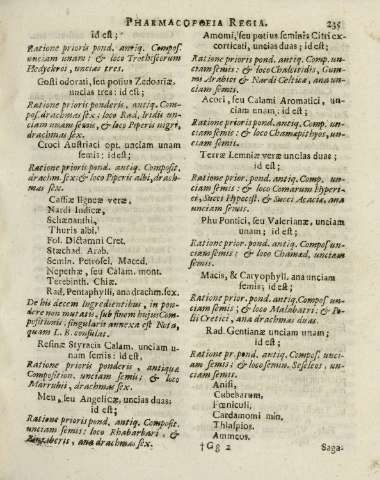 PHARMACOPOEIA REGIA. 235
id est;
Ratione prioris pond. antiq. Compos.
unciam unam: & loco Trochiscorum
Hedychroi, uncias tres.
Costi odorati, seu potius Zedoariæ,
uncias tres: id est;
Ratione prioris ponderis, antiq. Com-
pos. drachmas sex: loco Rad. Iridis un-
ciam unam semis, & loco Piperis nigri,
drachmas sex.
Croci Austriaci opt. unciam unam
semis: id est;
Ratione prioris pond. antiq. Composit.
drachm. sex: & loco Piperis albi, drach-
mas sex.
Cassiæ ligneæ veræ,
Nardi Indicæ,
Schœnanthi,
Thuris albi,
Fol. Dictamni Cret.
Stœchad. Arab.
Semin. Petrosel. Maced.
Nepethæ, seu Calam. mont.
Terebinth. Chiæ.
Rad. Pentaphylli, ana drachm. sex.
De his decem Ingredientibus, in pon-
dere non mutatis, sub finem hujus Com-
positionis, singularis annexa est Nota,
quam L. B. consulat.
Resinæ Styracis Calam. unciam u-
nam semis: id est.
Ratione prioris ponderis, antiquæ
Composition. unciam semis; & loco
Marrubii, drachmas sex.
Meu, seu Angelicæ, uncias duas;
id est;
Ratione prioris pond. antiq. Composit.
unciam semis: loco Rhabarbari, &
Zingiberis, ana drachmas sex.
Amomi, seu potius seminis Citri ex-
corticati, uncias duas; id est;
Ratione prioris pond. antiq. Comp. un-
ciam semis: & loco Chalcitidis, Gum-
mi Arabici & Nardi Celticæ, ana un-
ciam semis.
Acori, seu Calami Aromatici, un-
ciam unam; id est;
Ratione prioris pond. antiq. Comp. un-
ciam semis: & loco Chamæpityos, un-
ciam semis.
Terræ Lemniæ veræ uncias duas;
id est;
Ratione prior. pond. antiq. Comp. un-
ciam semis: & loco Comarum Hyperi-
ci, Succi Hypocist. & Succi Acaciæ, ana
unciam semis.
Phu Pontici, seu Valerianæ, unciam
unam; id est;
Ratione prior. pond. antiq. Compos. un-
ciam semis: & loco Chamæd, unciam
semis.
Macis, & Caryophyll. ana unciam
semis; id est;
Ratione prior. pond. antiq. Compos. un-
ciam semis; & loco Malabatri: & Po-
lii Cretici, ana drachmas duas.
Rad. Gentianæ unciam unam;
id est;
Ratione pr. pond. antiq. Compos. unci-
am semis; & loco semin. Seseleos, un-
ciam semis.
Anisi,
Cubebarum,
Fœniculi,
Cardamomi min.
Thlaspios.
Ammeos.
† Gg 2 Saga-